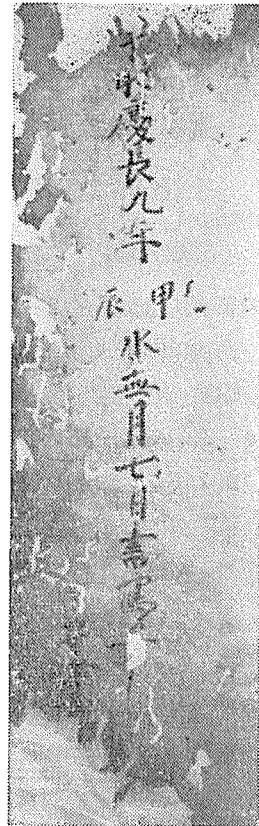 于時慶長九年甲辰水無月七日書写